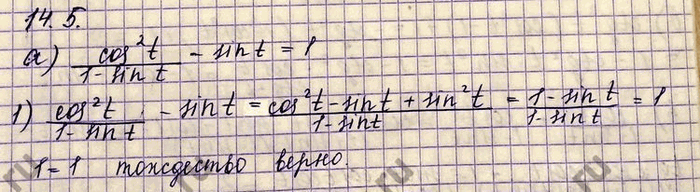 14.5.
а) cos²t / (1 - sin t) - sin t = 1
1) cos²t / (1 - sin t) - sin t = (cos²t - sin t + sin²t) / (1 - sin t) = (1 - sin t) / (1 - sin t) = 1
1 = 1 тождество верно.